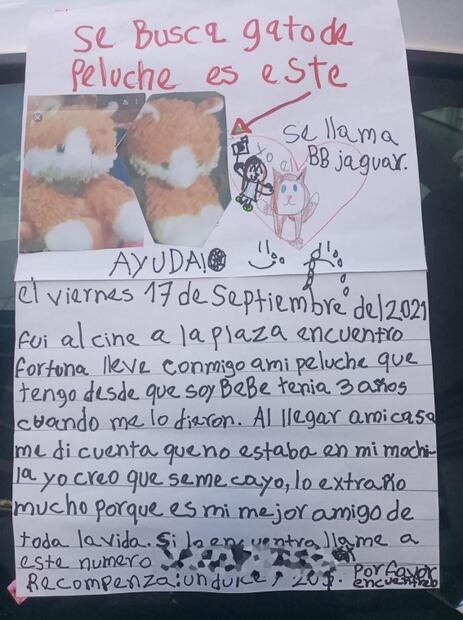 Se Busca gato de
Peluche es este
Se llama
BB jaguar.
yo el
AYUDA!
el viernes 17 de Septiembre del 2021
fui al cine a la plaza encuentro
fortuna lleve conmigo ami peluche que
tengo desde que soy BeBe tenia 3 años
cuando me lo dieron. Al llegar ami casa
me di cuenta que no estaba en mi mochi-
la yo creo que seme cayo, lo extraño
mucho porque es mi mejor amigo de
toda la vida. Si lo encuentra llame a
este numero
Recompenza: un dulce, 20$. Por favor
encuentrelo